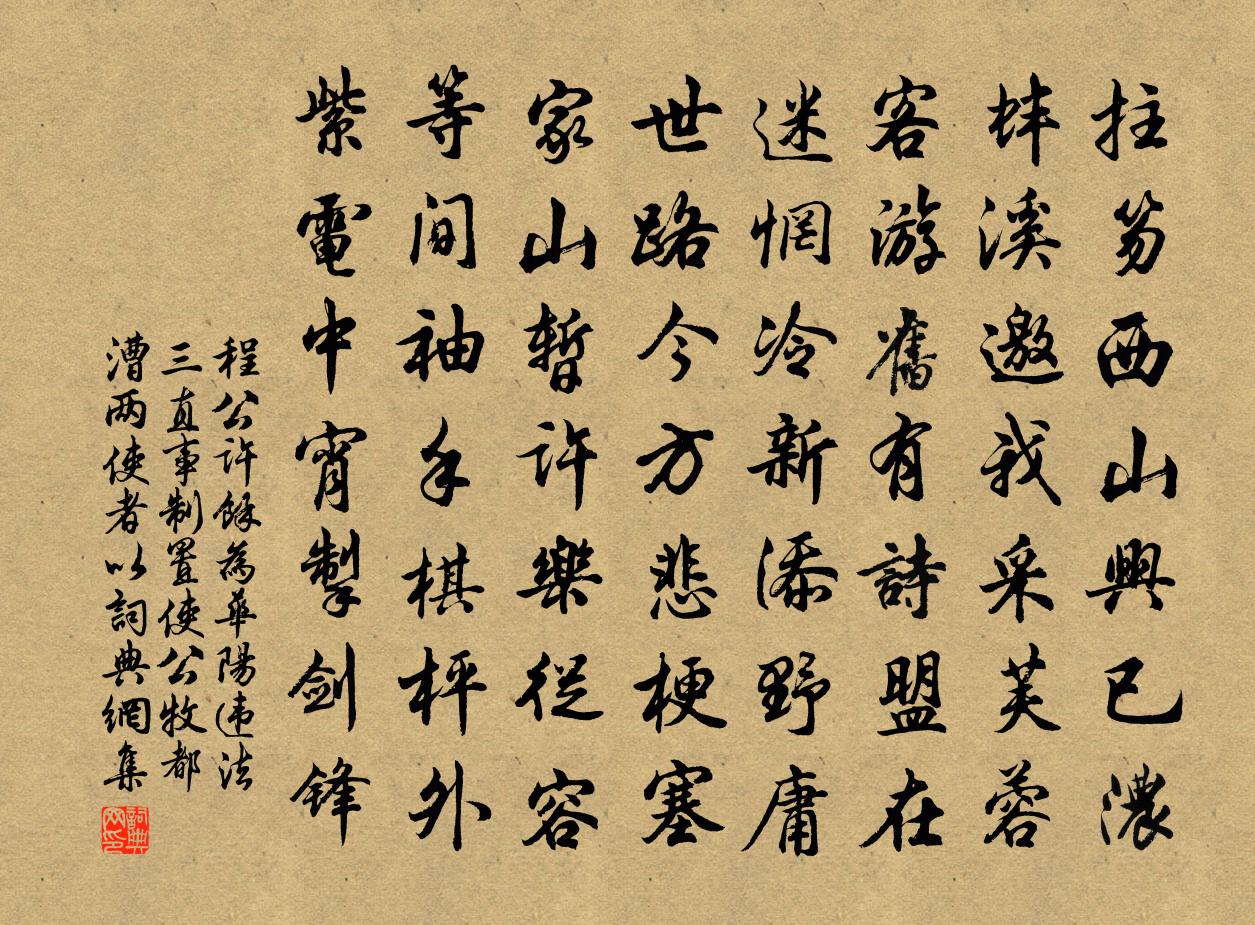 拄笏西山興已濃
蚌溪邀我采芙蓉
客游舊有詩盟在
迷惘冷新添野庸
世路今方悲梗塞
家山暫許樂從容
等间袖手棋枰外
紫電中宵掣劍锋
程公许餘為華陽违法
三直事制置使公牧都
漕两使者以詞典網集
詞典网印